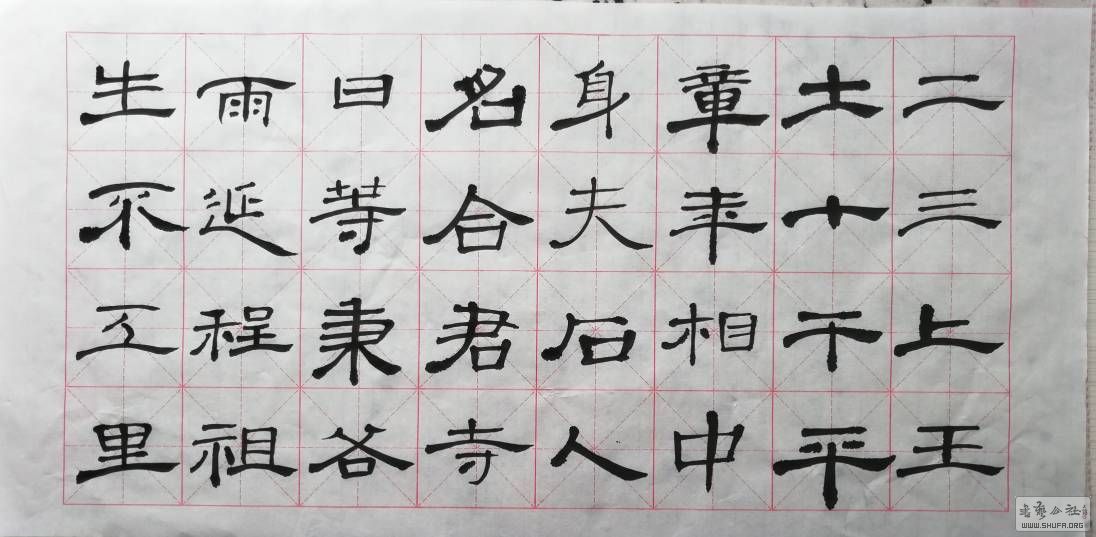 二三上王
土十干平
章年相中
身夫石人
名合君寺
曰等秉谷
雨延程祖
生不五里
書藝公社
WWW.SHUFA.ORG